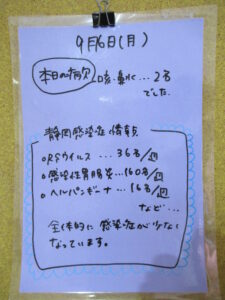 9月6日(月)
本日の病欠
咳・鼻水…2名
でした.
静岡感染症情報
○RSウイルス…36名/週
○感染性胃腸炎…160名/週
○ヘルパンギーナ…16名/週
など…
全体的に感染症が少なく
なっています。